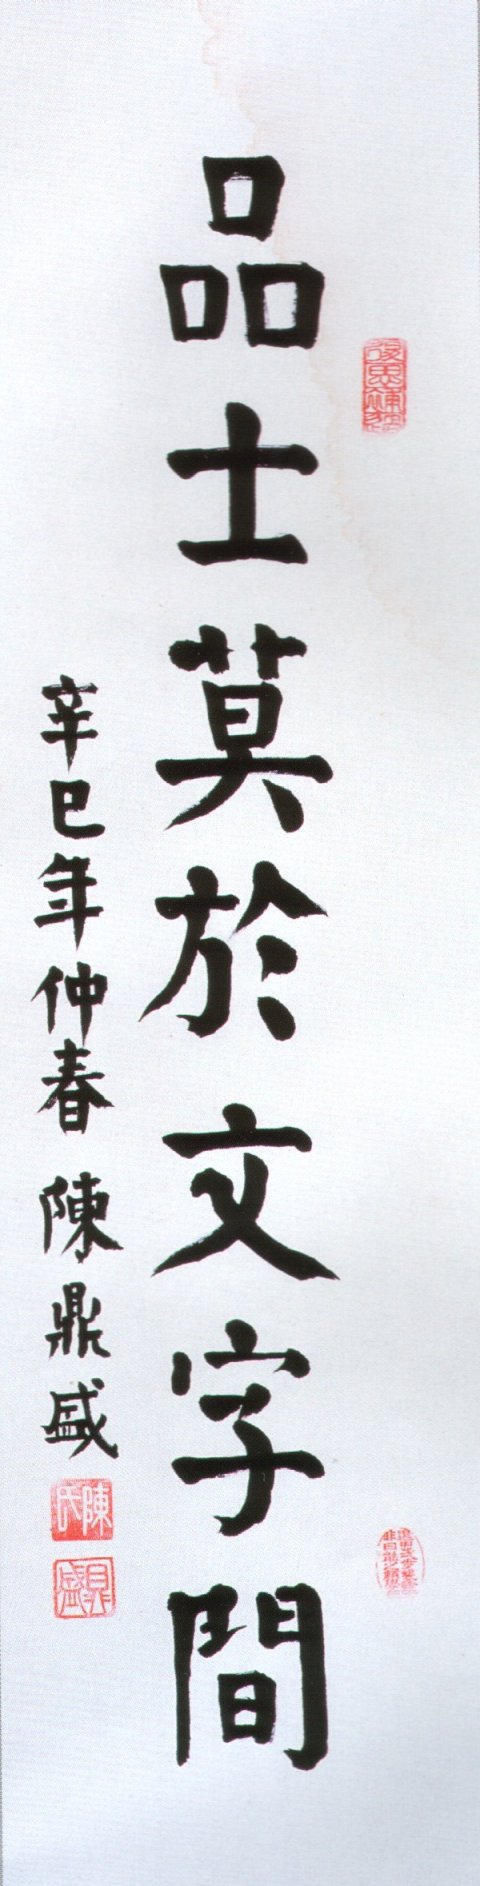 品士莫於文字間
辛巳年仲春 陳鼎盛
陳氏
鼎盛